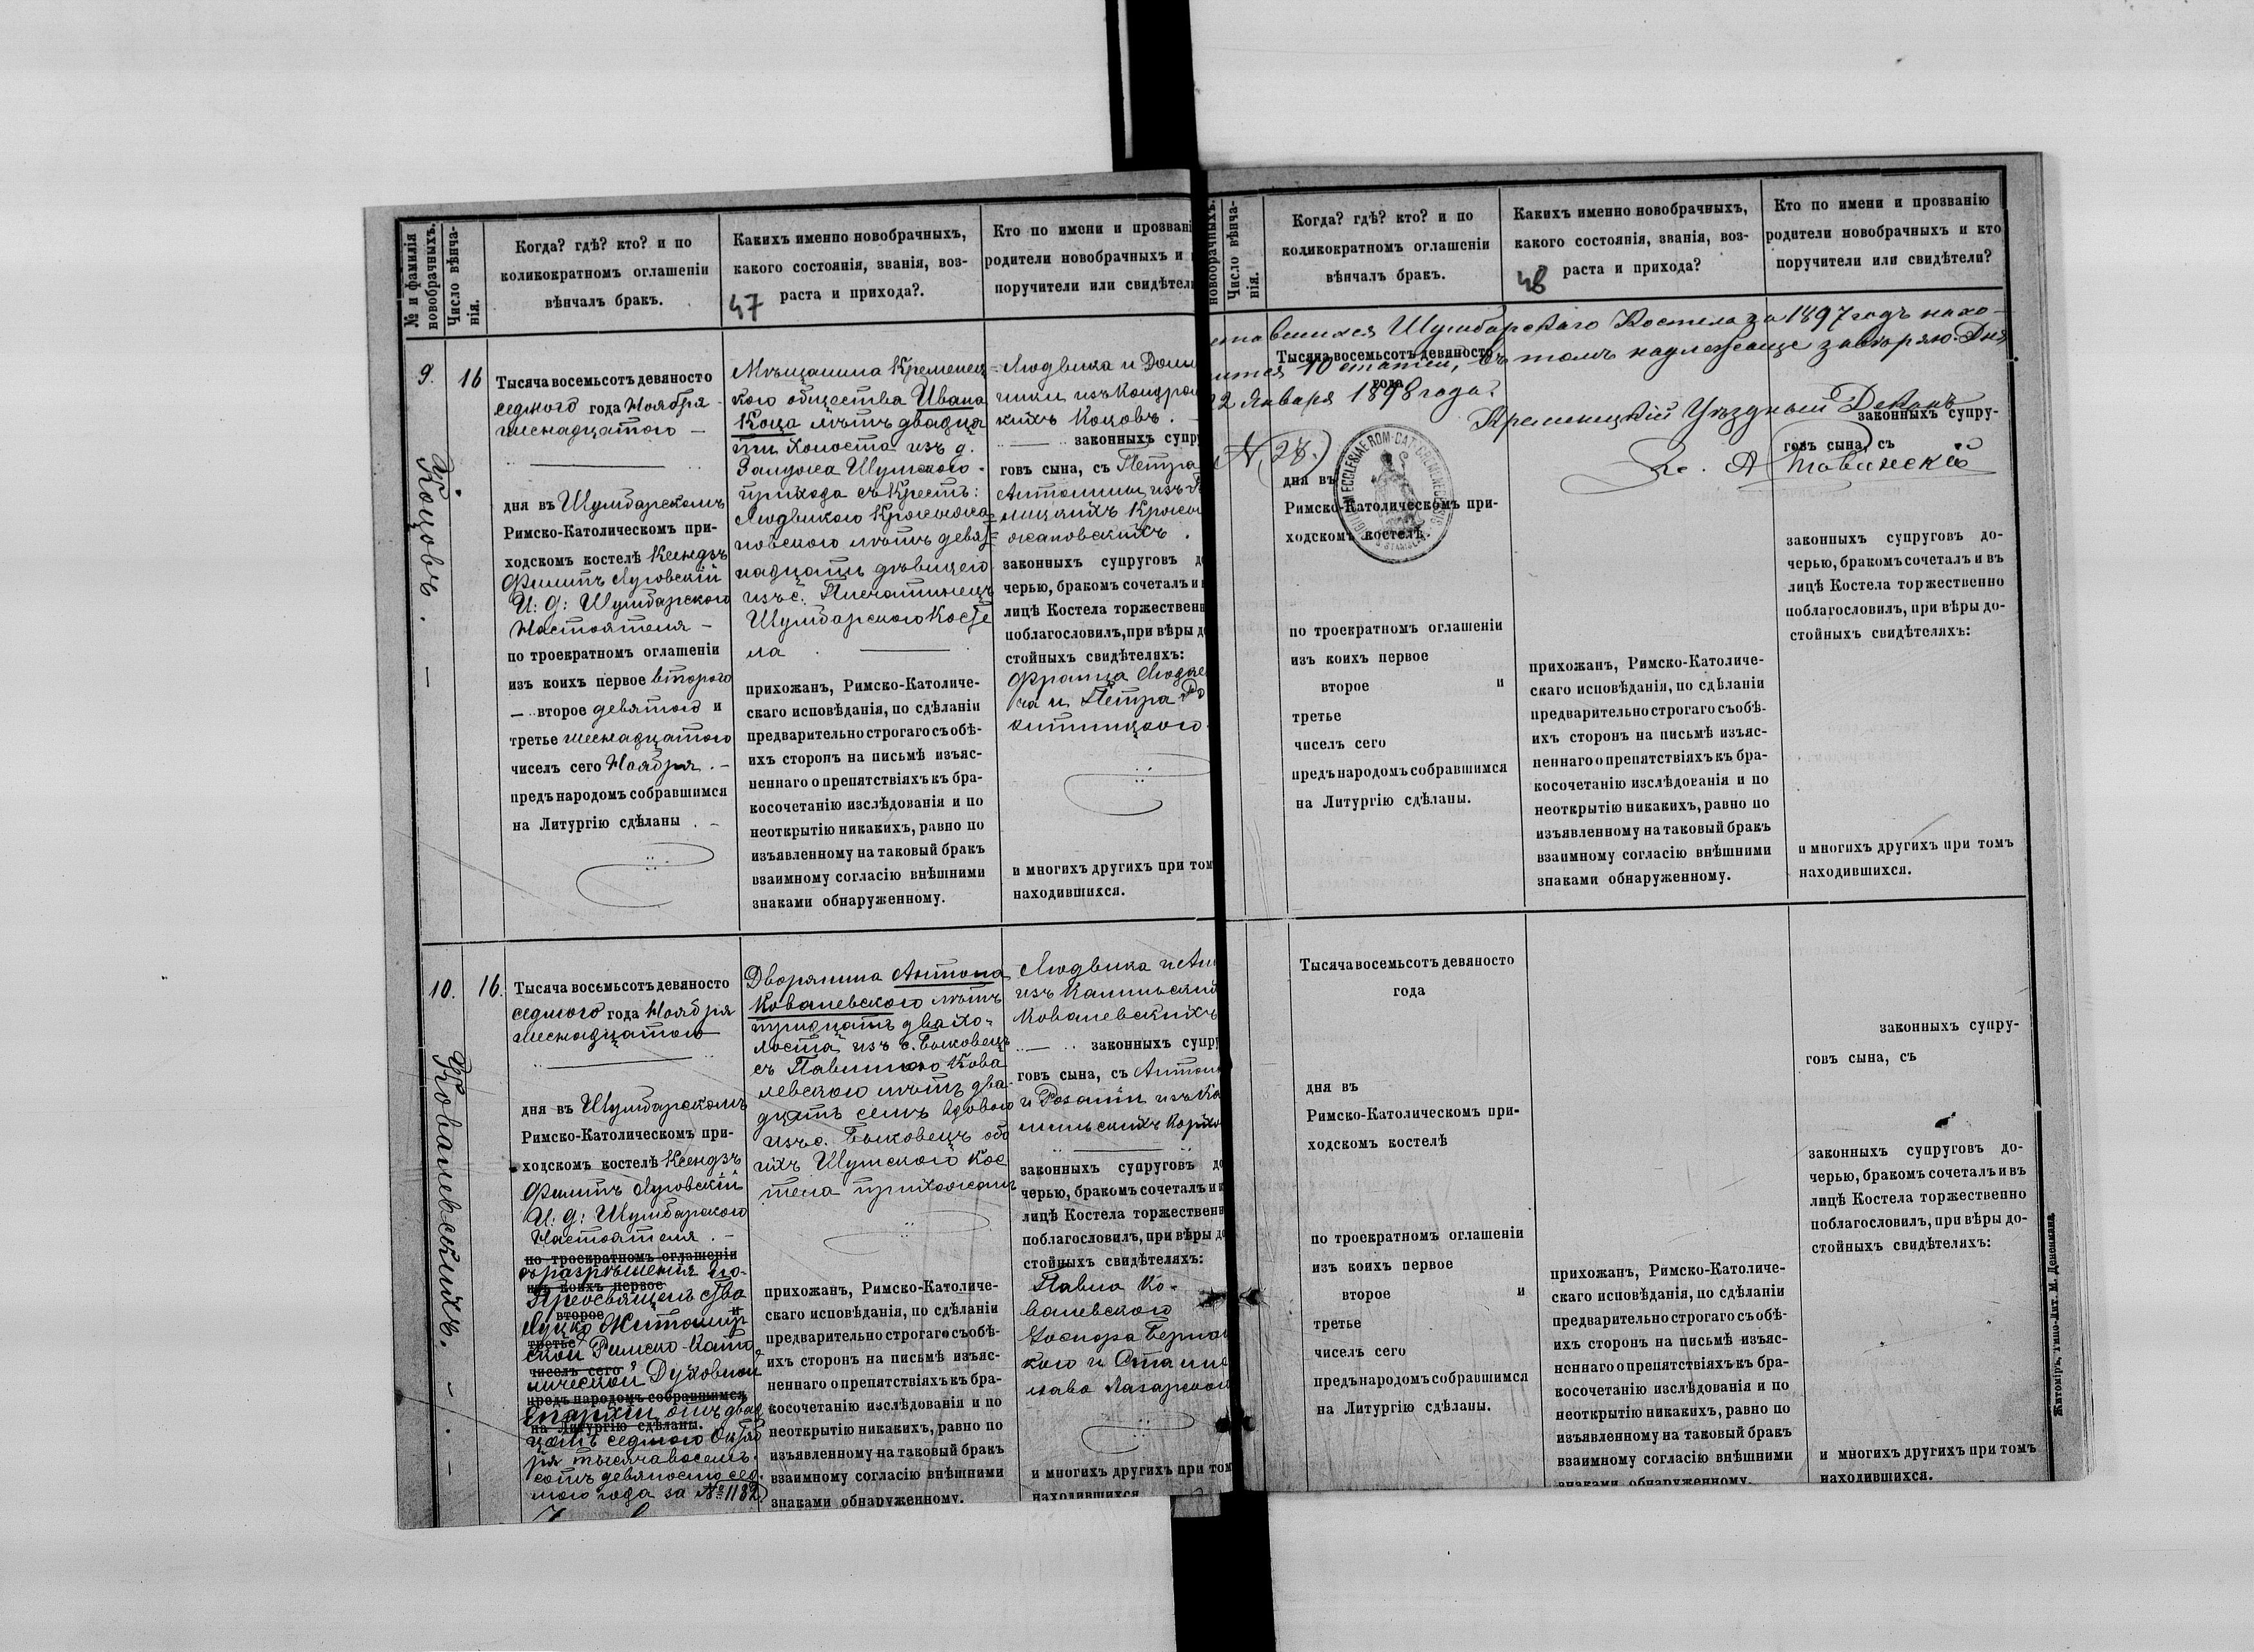 № и фамилія
новобрачныхъ.
Число вѣнча-
нія.
Когда? гдѣ? кто? и по
коликократномъ оглашеніи
вѣнчалъ бракъ.
Какихъ именно новобрачныхъ,
какого состоянія, званія, воз-
раста и прихода?.
47
Кто по имени и прозвані
родители новобрачныхъ и
поручители или свидѣтел
9.
16
Коцовъ. —
Тысяча восемьсотъ девяносто
седмого года Ноября
шеснадцатого —
дня въ Шумбарскомъ
Римско-Католическомъ при-
ходскомъ костелѣ Ксендзъ
Филипъ Луговскій
И: д: Шумбарского
Настоятеля —
по троекратномъ оглашеніи
изъ коихъ первое второго
— второе девятого и
третье шеснадцатого
числъ сего Ноября. —
предъ народомъ собравшимся
на Литургію сдѣланы . —
Мѣщанина Кременец
кого общества Ивана
Коца лѣтъ двадца
ти холоста изъ д.
Залужа Шумского
прихода съ Крест:
Людвикою
новского лѣтъ девят
надцать дѣвицею
изъ с.
Шумбарского Косте
ла
прихожанъ, Римско-Католиче-
скаго исповѣданія, по сдѣланіи
предварительно строгаго съ обѣ-
ихъ сторонъ на письмѣ изъяс-
неннаго о препятствіяхъ къ бра-
косочетанію изслѣдованія и по
неоткрытію никакихъ, равно по
изъявленному на таковый бракъ
взаимному согласію внѣшними
знаками обнаруженному.
Людвика и Доми
ники изъ Кондра
кихъ Коцовъ.
законныхъ супр
говъ сына, съ Петра
Антонины изъ
ожановскихъ.
законныхъ супруговъ д
черью, бракомъ сочеталъ и
лицѣ Костела торжествен
поблагословилъ, при вѣры д
стойныхъ свидѣтеляхъ:
Франца
ча и Петра
и многихъ другихъ при том
находившихся.
10.
16.
Ковалевскихъ. — . —
Тысяча восемьсотъ девяносто
седмого года Ноября
шеснадцатого
дня въ Шумбарскомъ
Римско-Католическомъ при-
ходскомъ костелѣ Ксендзъ
Филипъ Луговскій
И: д: Шумбарского
Настоятеля. —
по троекратномъ оглашеніи
съ разрѣшенія Его
изъ коихъ первое
Преосвященства
второе и
Луцко Житомир
третье
ской Римско-Като
чиселъ сего
лической Духовной
предъ народомъ собравшимся
Епархіи отъ двад
на Литургію сдѣланы.
цать седмого Октяб
ря тысяча восемь
сотъ девяносто сед
мого года за № 1182.
Дворянина Антона
Ковалевского лѣтъ
тридцать два хо-
лоста изъ с. Быковецъ
съ Павлиною Кова
левскою лѣтъ два-
дцать семь вдовою
изъ с. Быковецъ обо
ихъ Шумского Кос
тела прихожанъ
прихожанъ, Римско-Католиче-
скаго исповѣданія, по сдѣланіи
предварительно строгаго съ обѣ-
ихъ сторонъ на письмѣ изъяс-
неннаго о препятствіяхъ къ бра-
косочетанію изслѣдованія и по
неоткрытію никакихъ, равно по
изъявленному на таковый бракъ
взаимному согласію внѣшними
знаками обнаруженному.
Людвика и Ан
изъ
Ковалевскихъ
законныхъ супр
говъ сына, съ Антон
и Розаліи изъ Ка
законныхъ супруговъ д
черью, бракомъ сочеталъ и
лицѣ Костела торжествен
поблагословилъ, при вѣры д
стойныхъ свидѣтеляхъ:
Павла Ко-
валевского
кого и Станис
лава
и многихъ другихъ при том
находившихся
новобрачныхъ.
Число вѣнча-
нія.
Когда? гдѣ? кто? и по
коликократномъ оглашеніи
вѣнчалъ бракъ.
Какихъ именно новобрачныхъ,
какого состоянія, званія, воз-
раста и прихода?
48
Кто по имени и прозванію
родители новобрачныхъ и кто
поручители или свидѣтели?
Шумбарскаго Костела за 1897 годъ нахо-
Тысяча восемьсотъ девяносто
10 статей, въ томъ надлежаще завѣряю. Дня
года
22 Января 1898 года.
Кременецкій Уѣздный Деканъ
N 28.
SIGILLUM ECCLESIAE ROM-CAT-CREMENECENSIS
S. STANISLAI
дня въ
Римско-Католическомъ при-
ходскомъ костелѣ.
по троекратномъ оглашеніи
изъ коихъ первое
второе и
третье
чиселъ сего
предъ народомъ собравшимся
на Литургію сдѣланы.
прихожанъ, Римско-Католиче-
скаго исповѣданія, по сдѣланіи
предварительно строгаго съ обѣ-
ихъ сторонъ на письмѣ изъяс-
неннаго о препятствіяхъ къ бра-
косочетанію изслѣдованія и по
неоткрытію никакихъ, равно по
изъявленному на таковый бракъ
взаимному согласію внѣшними
знаками обнаруженному.
законныхъ супру-
говъ сына, съ
законныхъ супруговъ до-
черью, бракомъ сочеталъ и въ
лицѣ Костела торжественно
поблагословилъ, при вѣры до-
стойныхъ свидѣтеляхъ:
и многихъ другихъ при томъ
находившихся.
Тысяча восемьсотъ девяносто
года
дня въ
Римско-Католическомъ при-
ходскомъ костелѣ
по троекратномъ оглашеніи
изъ коихъ первое
второе и
третье
чиселъ сего
предъ народомъ собравшимся
на Литургію сдѣланы.
прихожанъ, Римско-Католиче-
скаго исповѣданія, по сдѣланіи
предварительно строгаго съ обѣ-
ихъ сторонъ на письмѣ изъяс-
неннаго о препятствіяхъ къ бра-
косочетанію изслѣдованія и по
неоткрытію никакихъ, равно по
изъявленному на таковый бракъ
взаимному согласію внѣшними
знаками обнаруженному.
законныхъ супру-
говъ сына, съ
законныхъ супруговъ до-
черью, бракомъ сочеталъ и въ
лицѣ Костела торжественно
поблагословилъ, при вѣры до-
стойныхъ свидѣтеляхъ:
и многихъ другихъ при томъ
находившихся.
Житоміръ, Типо-Лит. М. Дененмана.